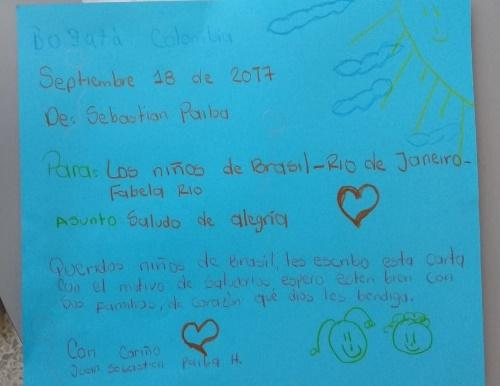 Bogatá Colombia
Septiembre 18 de 2017
De: Sebastian Paiba
Para: Los niños de Brasil-Rio de Janeiro-
Fabela Rio
Asunto: Saludo de alegría
Queridos niños de Brasil, les escribo esta carta
con el motivo de saludarlos, espero esten bien con
sus familias, de corazón que dios les bendiga.
Con Cariño
Juan Sebastian Paiba H.